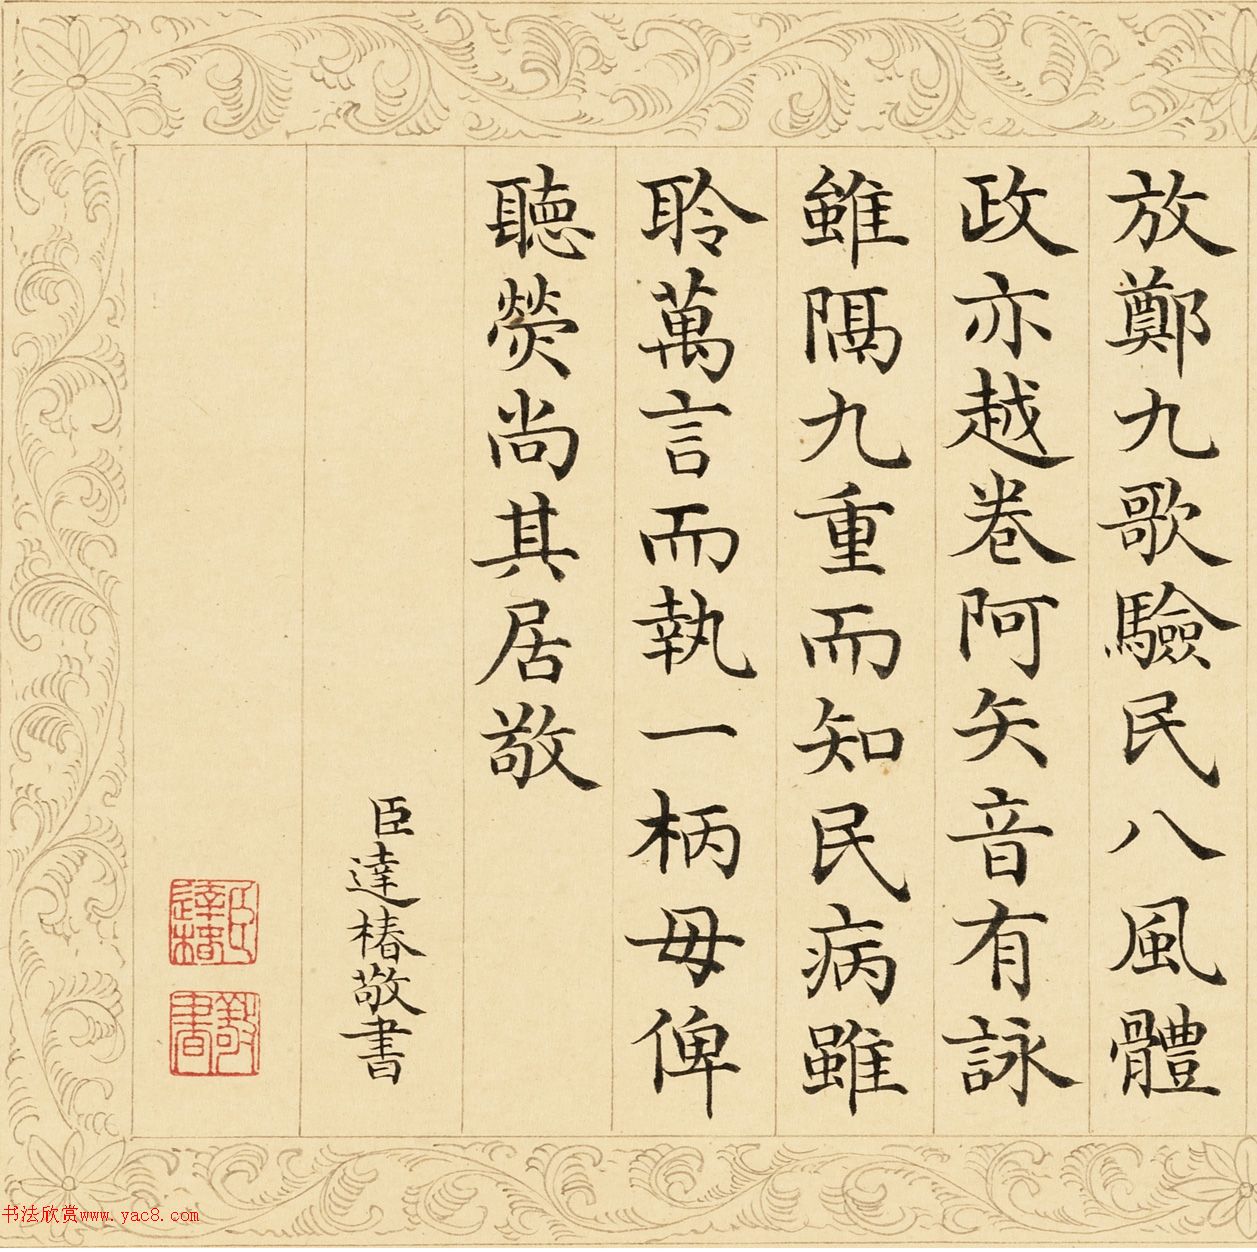 放鄭九歌驗民八風體
政亦越卷阿矢音有詠
雖隔九重而知民病雖
聆萬言而執一柄毋俾
聽熒尚其居敬
臣達椿敬書
臣達椿
敬書
书法欣赏www.yac8.com